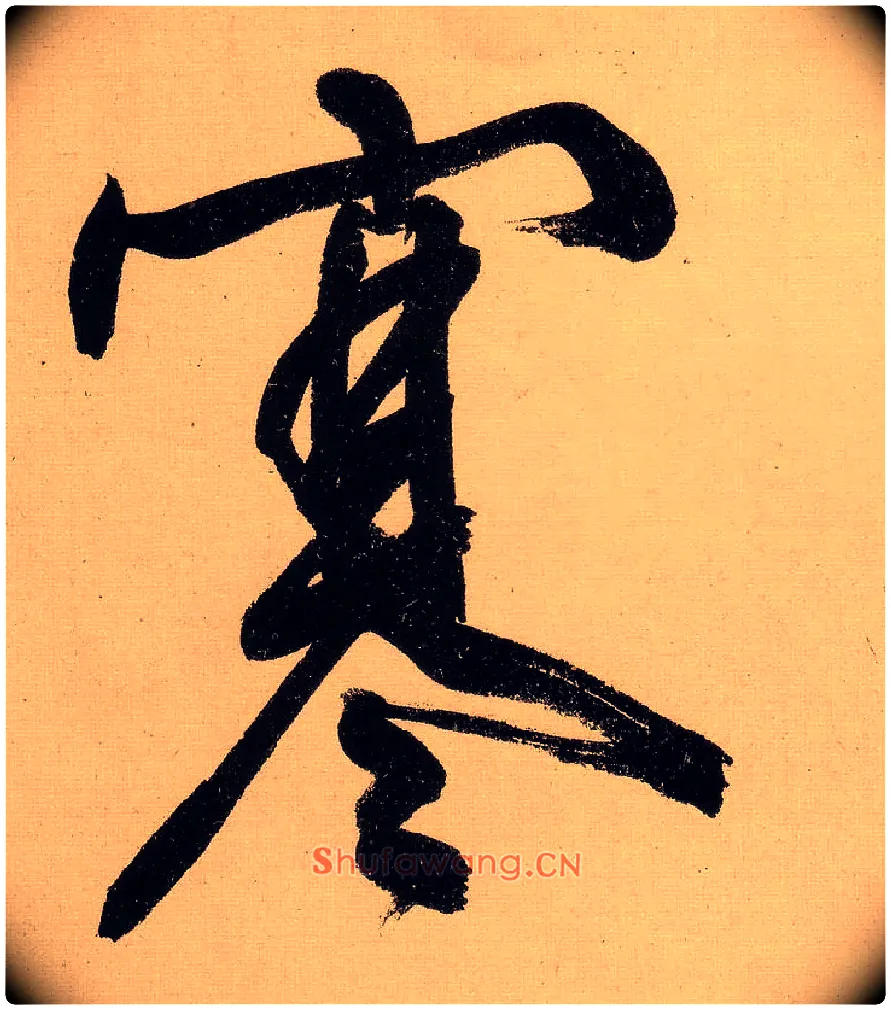 寒
Shufawang.CN